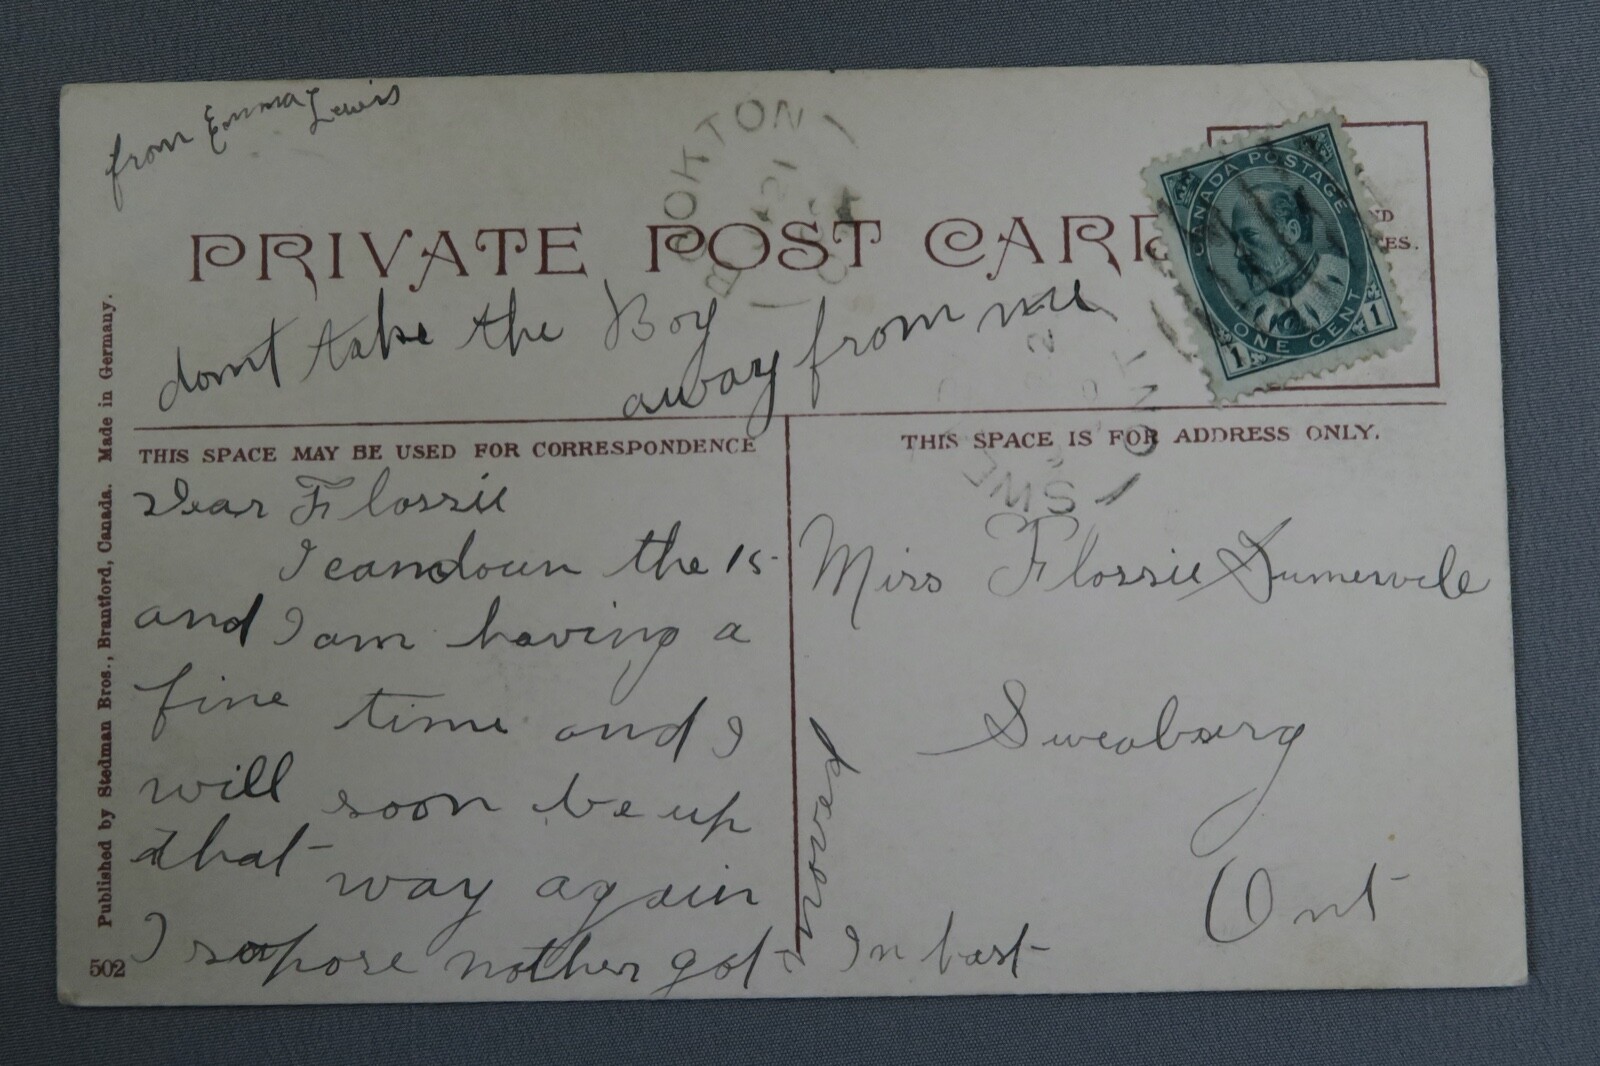 from Emma Lewis
PRIVATE POST CARD
CANADA POSTAGE
ONE CENT
1 1
dont take the Boy
away from me
THIS SPACE MAY BE USED FOR CORRESPONDENCE
THIS SPACE IS FOR ADDRESS ONLY.
Dear Flossie
I came down the 15
and I am having a
fine time and I
will soon be up
that way again
I supose nother got moved In bast
Miss Flossie Sumervile
Sweaburg
Ont
Published by Stedman Bros., Brantford, Canada. Made in Germany.
502